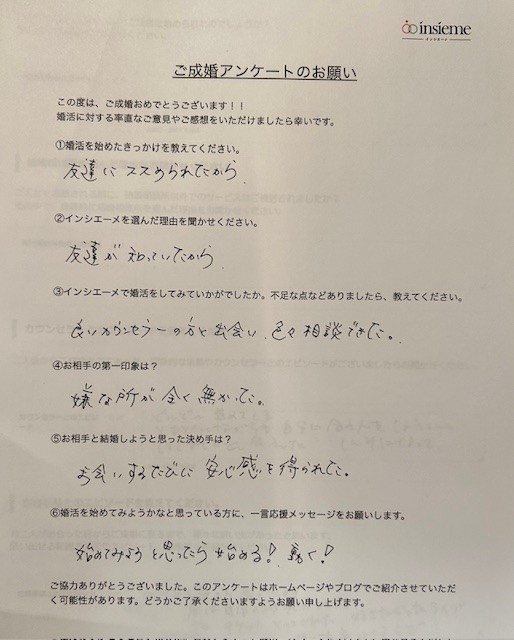 insieme
インシエーメ
ご成婚アンケートのお願い
この度は、ご成婚おめでとうございます！！
婚活に対する率直なご意見やご感想をいただけましたら幸いです。
①婚活を始めたきっかけを教えてください。
友達にススめられたから
②インシエーメを選んだ理由を聞かせください。
友達が知っていたから
③インシエーメで婚活をしてみていかがでしたか。不足な点などありましたら、教えてください。
良いカウンセラーの方と出会い、色々相談できた。
④お相手の第一印象は？
嫌な所が全く無かった。
⑤お相手と結婚しようと思った決め手は？
お会いするたびに安心感を得られた。
⑥婚活を始めてみようかなと思っている方に、一言応援メッセージをお願いします。
始めてみようと思ったら始める！動く！
ご協力ありがとうございました。このアンケートはホームページやブログでご紹介させていただ
く可能性があります。どうかご了承くださいますようお願い申し上げます。